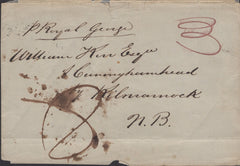 p Royal George
William Kerr Esqr
Cuninghamhead
Kilmarnock
N.B.